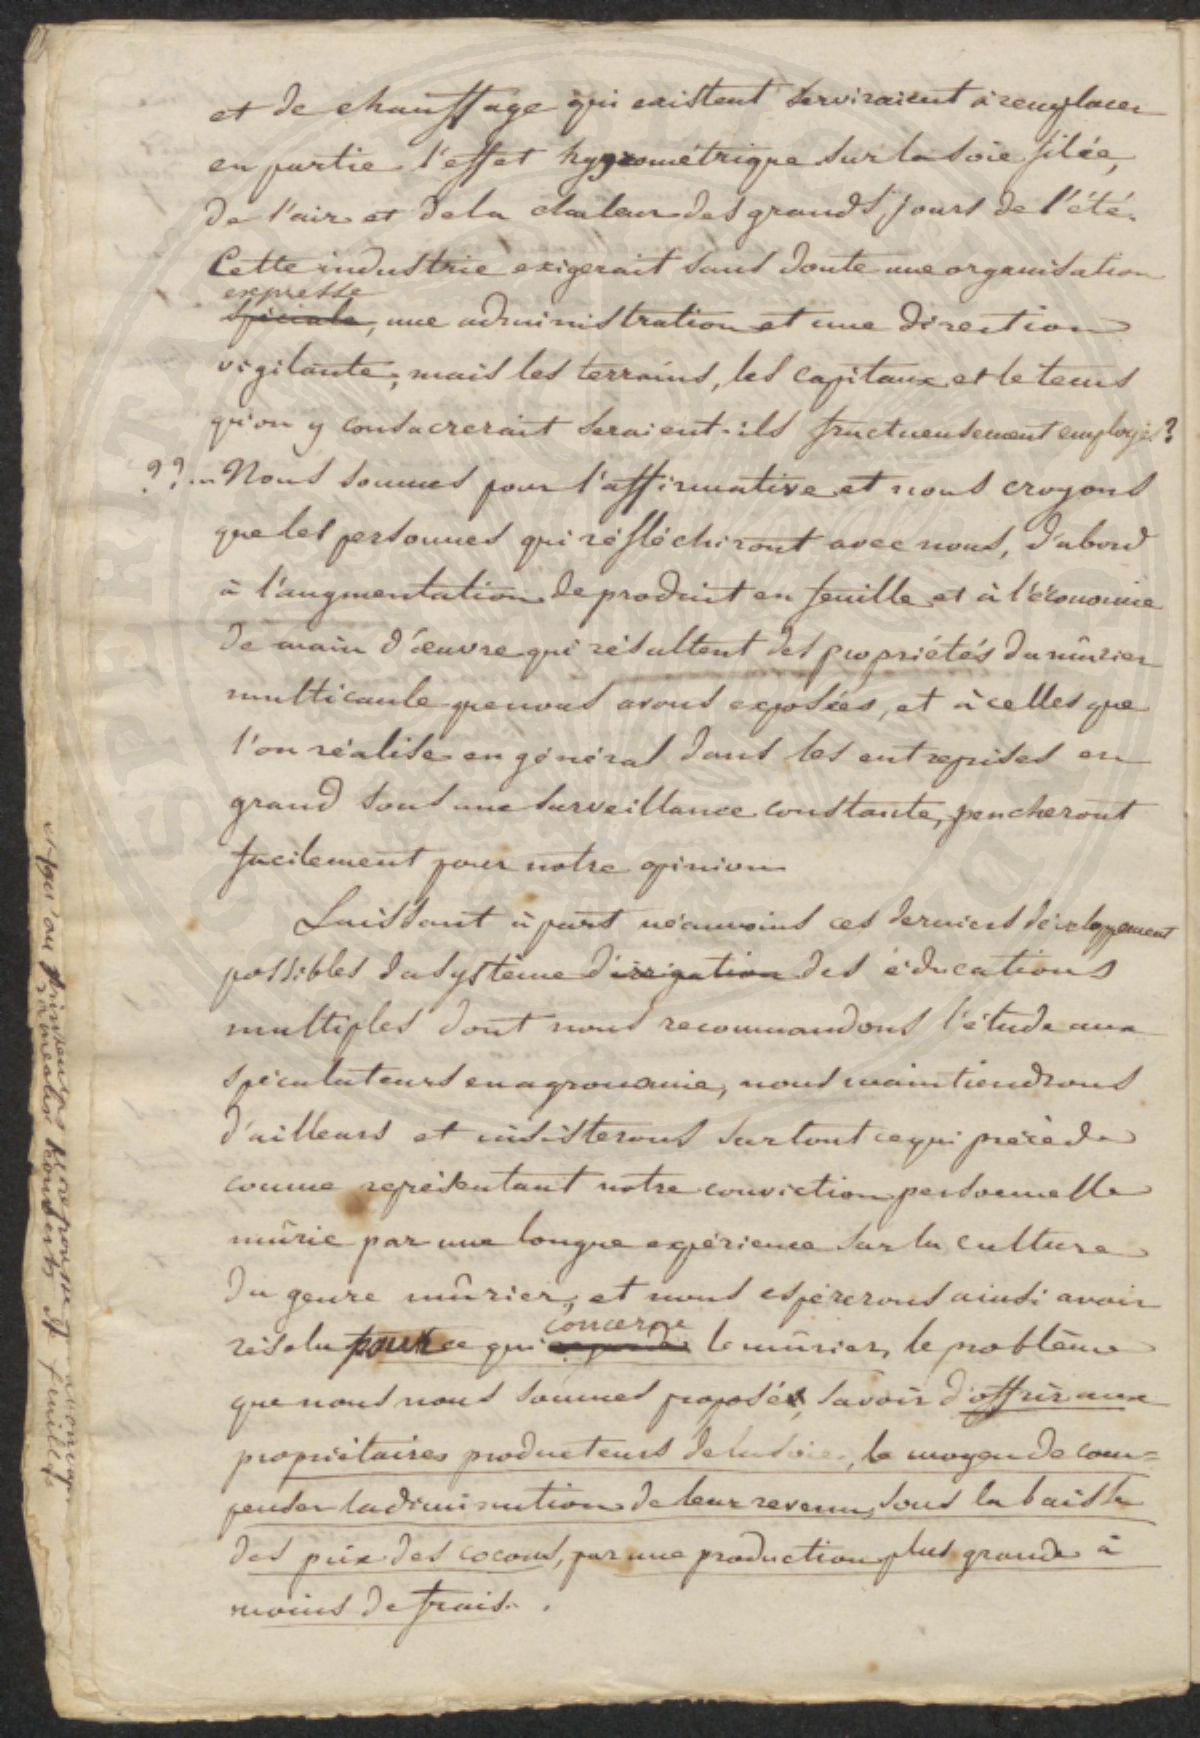 et de chauffage qui existent serviraient à remplacer
en partie l'effet hygrométrique sur la soie filée,
de l'air et de la chaleur des grands jours de l'été.
Cette industrie exigerait sans doute une organisation
expresse
spéciale, une administration et une direction
vigilante; mais les terrains, les capitaux et le tems
qu'on y consacrerait seraient-ils fructueusement employés?
??... Nous sommes pour l'affirmative et nous croyons
que les personnes qui réfléchiront avec nous, d'abord
à l'augmentation de produit en feuille et à l'économie
de main d'œuvre qui résultent des propriétés du mûrier
multicaule que nous avons exposées, et à celles que
l'on réalise en général dans les entreprises en
grand sous une surveillance constante, pencheront
facilement pour notre opinion
Laissant à part néanmoins ces derniers développement
possibles du système d'irrigation des éducations
multiples dont nous recommandons l'étude aux
spéculateurs en agronomie, nous maintiendrons
d'ailleurs et insisterons sur tout ce qui précède
comme représentant notre conviction personnelle
mûrie par une longue expérience sur la culture
du genre mûrier, et nous espérerons ainsi avoir
concerne
résolu pour ce qui le mûrier, le problème
que nous nous sommes proposé, savoir d'offrir aux
propriétaires producteurs de la soie, le moyen de com=
penser la diminution de leur revenu, sous la baisse
des prix des cocons, par une production plus grande à
moins de frais.
et qu'au printemps
rameaux et feuilles
SPERITAT